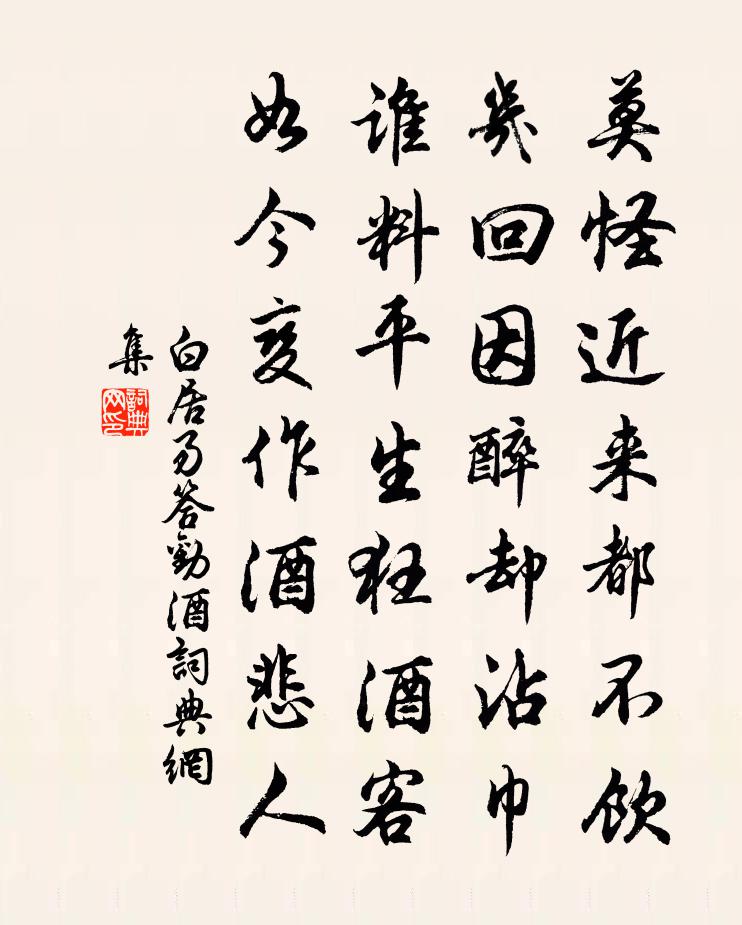 莫怪近来都不飲
幾回因醉却沾巾
誰料平生狂酒客
如今变作酒悲人
白居易答勸酒詞典網
集
詞典网印